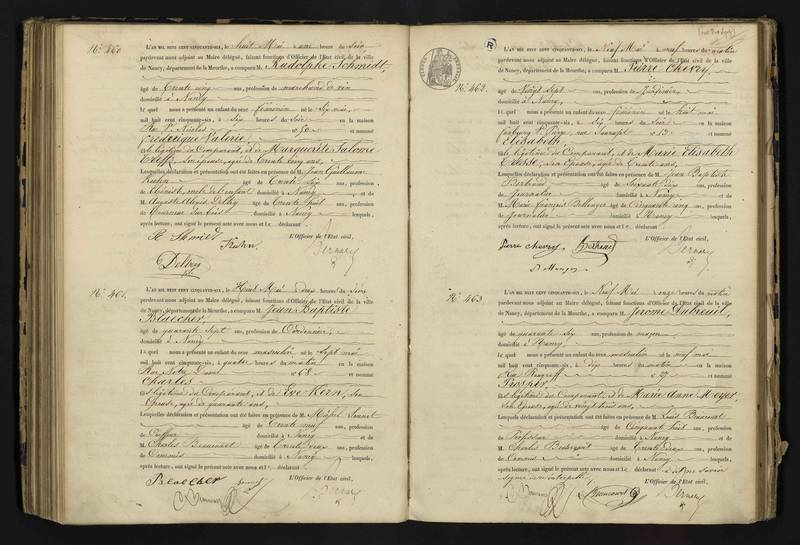 N.º 460
L'AN MIL HUIT CENT CINQUANTE-SIX, le huit Mai une heures du Soir
pardevant nous adjoint au Maire délégué, faisant fonctions d'Officier de l'Etat civil de la ville
de Nancy, département de la Meurthe, a comparu M. Rudolphe Schmidt,
âgé de trente cinq ans, profession de marchand de vin
domicilié à Nancy
lequel nous a présenté un enfant du sexe féminin né le Six mai
mil huit cent cinquante-six, à Six heures du Soir en la maison
Rue St. Nicolas n.º 50 et nommé
Frédérique Valérie,
légitime du Comparant, et de Marguerite Salomé
son épouse, âgée de trente cinq ans,
Lesquelles déclaration et présentation ont été faites en présence de M. Jean Guillaume
Kuhn âgé de trente Six ans, profession
de domicilié à Nancy et de
M. Auguste Alexis Delvoy âgé de trente huit ans, profession
de domicilié à Nancy lesquels,
après lecture, ont signé le présent acte avec nous et le déclarant
R. Schmidt Kuhn. L'Officier de l'Etat civil,
Bernard
N.º 461.
L'AN MIL HUIT CENT CINQUANTE-SIX, le Huit Mai deux heures du Soir
pardevant nous adjoint au Maire délégué, faisant fonctions d'Officier de l'Etat civil de la ville
de Nancy, département de la Meurthe, a comparu M. Jean Baptiste
Blaecher
âgé de quarante sept ans, profession de Cordonnier,
domicilié à Nancy
lequel nous a présenté un enfant du sexe masculin né le Sept mai
mil huit cent cinquante-six, à quatre heures du matin en la maison
Rue Notre Dame n.º 68 et nommé
Charles
légitime du Comparant, et de Eve Kern, son
épouse, âgée de quarante ans,
Lesquelles déclaration et présentation ont été faites en présence de M. Michel
âgé de trente neuf ans, profession
de Coiffeur domicilié à Nancy et de
M. Charles Beaucourt âgé de trente deux ans, profession
de Commis domicilié à Nancy lesquels,
après lecture, ont signé le présent acte avec nous et le déclarant
Blaecher L'Officier de l'Etat civil,
Bernard
R
N.º 462.
L'AN MIL HUIT CENT CINQUANTE-SIX, le Neuf Mai neuf heures du matin
pardevant nous adjoint au Maire délégué, faisant fonctions d'Officier de l'Etat civil de la ville
de Nancy, département de la Meurthe, a comparu M. Pierre Chevry,
âgé de vingt Sept ans, profession de Jardinier
domicilié à Nancy,
lequel nous a présenté un enfant du sexe féminin né le huit mai
mil huit cent cinquante-six, à Six heures du Soir en la maison
faubourg St. Pierre, n.º 13 et nommé
Elisabeth
légitime du Comparant, et de Marie Elisabeth
son épouse, âgée de trente ans,
Lesquelles déclaration et présentation ont été faites en présence de M. Jean Baptiste
Bertrand âgé de Soixante dix ans, profession
de journalier domicilié à Nancy et de
M. Marie François Bellanger âgé de Cinquante cinq ans, profession
de journalier domicilié à Nancy lesquels,
après lecture, ont signé le présent acte avec nous et le déclarant
Pierre chevry Bertrand L'Officier de l'Etat civil,
Bernard
N.º 463
L'AN MIL HUIT CENT CINQUANTE-SIX, le Neuf Mai onze heures du matin
pardevant nous adjoint au Maire délégué, faisant fonctions d'Officier de l'Etat civil de la ville
de Nancy, département de la Meurthe, a comparu M. Jérome Dubreuil,
âgé de quarante Six ans, profession de maçon
domicilié à Nancy,
lequel nous a présenté un enfant du sexe masculin né le neuf mai
mil huit cent cinquante-six, à dix heures du matin en la maison
n.º 27 et nommé
Prosper
légitime du Comparant, et de Marie Anne Meyer,
Son épouse, âgée de vingt huit ans,
Lesquelles déclaration et présentation ont été faites en présence de M. Louis
âgé de Cinquante huit ans, profession
de Professeur domicilié à Nancy et de
M. Charles Beaucourt âgé de trente deux ans, profession
de Commis domicilié à Nancy lesquels,
après lecture, ont signé le présent acte avec nous et le déclarant a dit ne savoir
signer
L'Officier de l'Etat civil,
Beaucourt Bernard